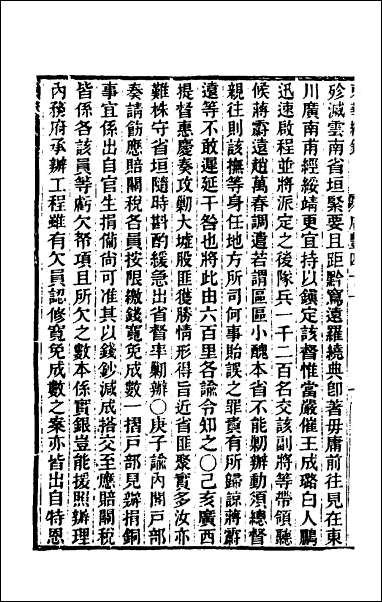 殄滅雲南省垣緊要且距黔窵遠羅繞典卽著毋庸前往見在東
川廣南甫經綏靖更宜持以鎭定該督惟當嚴催王成璐白人鵬
迅速啟程並將派定之後隊兵一千二百名交該副將等帶領聽
候蔣霨遠趙萬春調遣若謂區區小醜本省不能勦辦動須總督
親往則該撫等身任地方所司何事貽誤之罪責有所歸諒蔣霨
遠等不敢遲延干咎也將此由六百里各諭令知之〇己亥廣西
提督惠慶奏攻勦大墟股匪獲勝情形得旨近省匪聚實多汝亦
難株守省垣隨時斟酌緩急出省督率勦辦〇庚子諭內閣戶部
奏請飭應賠關稅各員按限繳錢寬免成數一摺戶部見辦捐銅
事宜係出自官生捐備尚可准其以錢鈔減成搭交至應賠關稅
皆係各該員等虧欠帑項且所欠之數本係實銀豈能援照辦理
內務府承辦工程雖有欠員認修寬免成數之案亦皆出自特恩